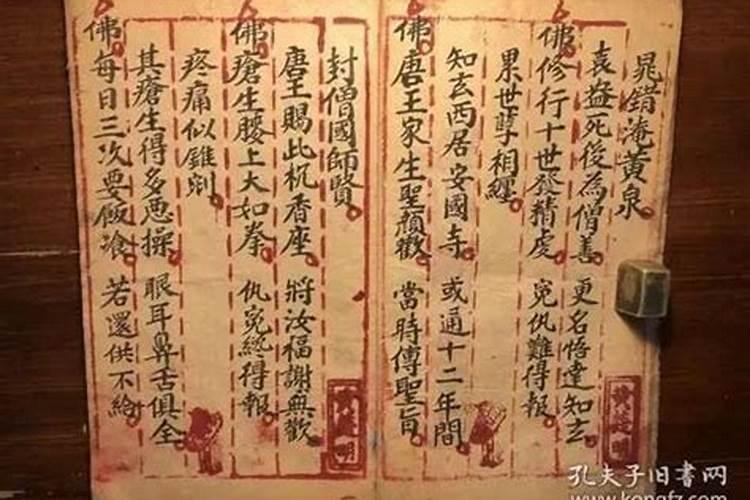 晁錯淹黄泉
袁益死後為僧善 更名悟達知玄
佛修行十世發精虔 冤仇難得報
累世孽相纏
知玄西居安國寺 或通十二年間
佛唐王家生聖顔歡 當時傳聖旨
封僧國師賢
唐王賜此机香座 將汝福謝無歡
佛瘡生腰上大如拳 仇冤總得報
疼痛似錐剜
其瘡生得多惡操 眼耳鼻舌俱全
佛每日三次要飯飡 若還供不給
孔夫子旧书网